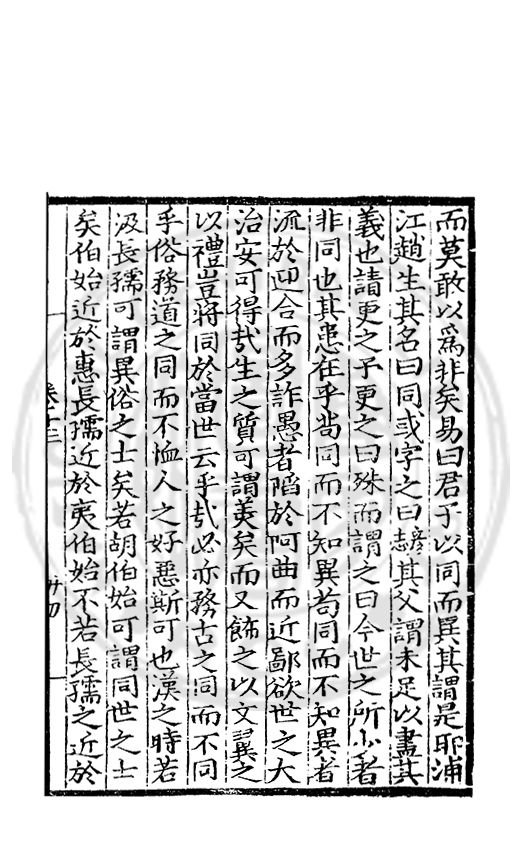 而莫敢以爲非矣易曰君子以同而異其謂是耶浦
江趙生其名曰同或字之曰
其父謂未足以盡其
義也請更之予更之曰殊而謂之曰今世之所少者
非同也其患在乎苟同而不知異苟同而不知異者
流於迎合而多詐愚者陷於阿曲而近鄙欲世之大
治安可得哉生之質可謂美矣而又飾之以文翼之
以禮豈將同於當世云乎哉必亦務古之同而不同
乎俗務道之同而不恤人之好惡斯可也漢之時若
汲長孺可謂異俗之士矣若胡伯始可謂同世之士
矣伯始近於惠長孺近於夷伯始不若長孺之近於
卷十三